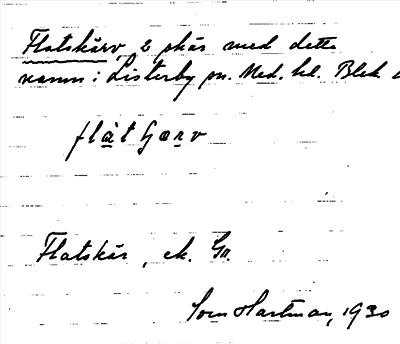 Flatskärv, 2 skär med detta
namn: Listerby sn. Med. hd. Blek
flàt hærv
Flatskär, ek. Gll.
Sven Hartman, 1930